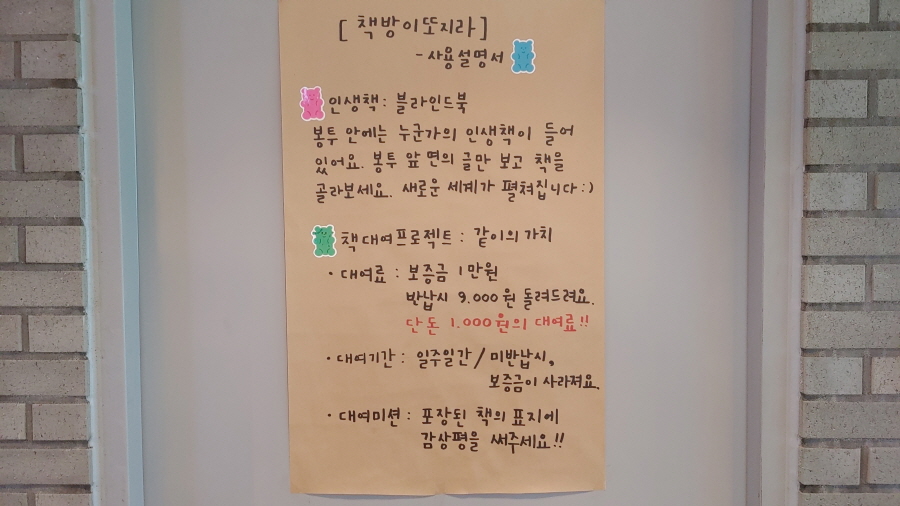 [책방이또지라]
-사용설명서
인생책: 블라인드북
봉투 안에는 누군가의 인생책이 들어
있어요. 봉투 앞 면의 글만 보고 책을
골라보세요. 새로운 세계가 펼쳐집니다:)
책대여프로젝트: 같이의 가치
· 대여료: 보증금 1만원
반납시 9.000원 돌려드려요.
단돈 1.000원의 대여료!!
· 대여기간: 일주일간/미반납시,
보증금이 사라져요.
· 대여미션: 포장된 책의 표지에
감상평을 써주세요!!